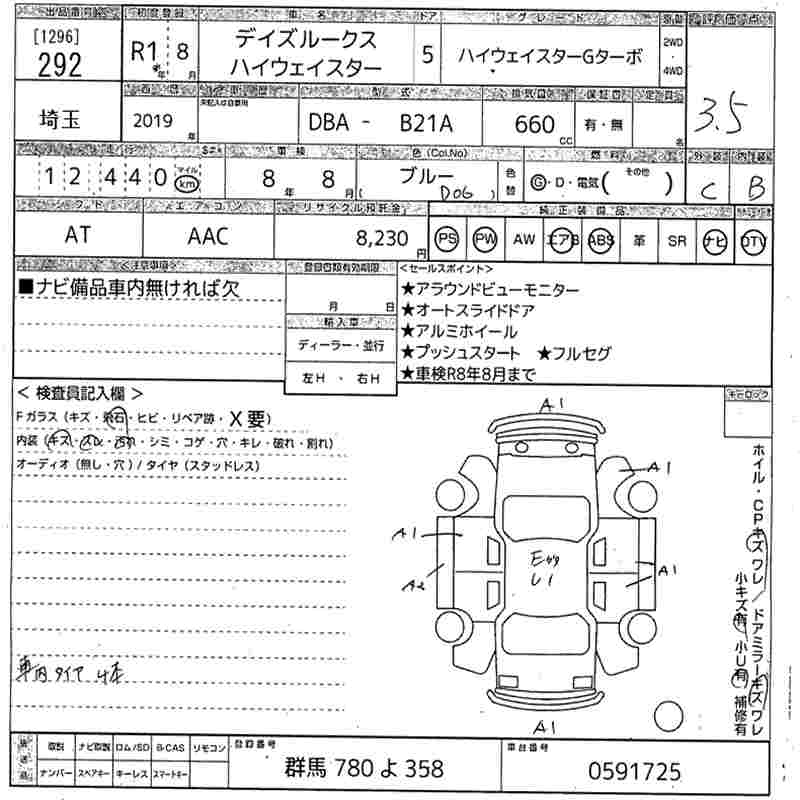 出品番号 初度登録 車名 ドア グレード 駆動 評価点
[1296]
292
R1 年 8 月
デイズルークス
ハイウェイスター
5
ハイウェイスターGターボ
2WD
4WD
3.5
埼玉
2019 年
未記入は自家用
型式
DBA - B21A
660 cc
有・無
名
走行 車検 色 (Col.No) 燃料 外装 内装
12440 マイル km
8 年 8 月
ブルー
( DOG )
色替
G・D・電気 ( その他 )
C
B
シフト エアコン リサイクル預託金 純正装備品
AT
AAC
8,230 円
PS PW AW エアB ABS 革 SR ナビ DTV
<注意事項>
■ナビ備品車内無ければ欠
登録書類有効期限
月 日
輸入車
ディーラー・並行
左H ・ 右H
<セールスポイント>
★アラウンドビューモニター
★オートスライドドア
★アルミホイール
★プッシュスタート ★フルセグ
★車検R8年8月まで
< 検査員記入欄 >
Fガラス (キズ・飛石・ヒビ・リペア跡・X要)
内装 (キズ・スレ・汚れ・シミ・コゲ・穴・キレ・破れ・割れ)
オーディオ (無し・穴) / タイヤ (スタッドレス)
車内タイヤ 4本
キーロック
A1
A1
A1
A2
A1
U1
A1
ホイル・CPキズワレ/ドアミラーキズワレ
小キズ有 小U有 補修有
取説 ナビ取説 ロム/SD B-CAS リモコン
ナンバー スペアキー キーレス スマートキー
登録番号
群馬 780 よ 358
車台番号
0591725